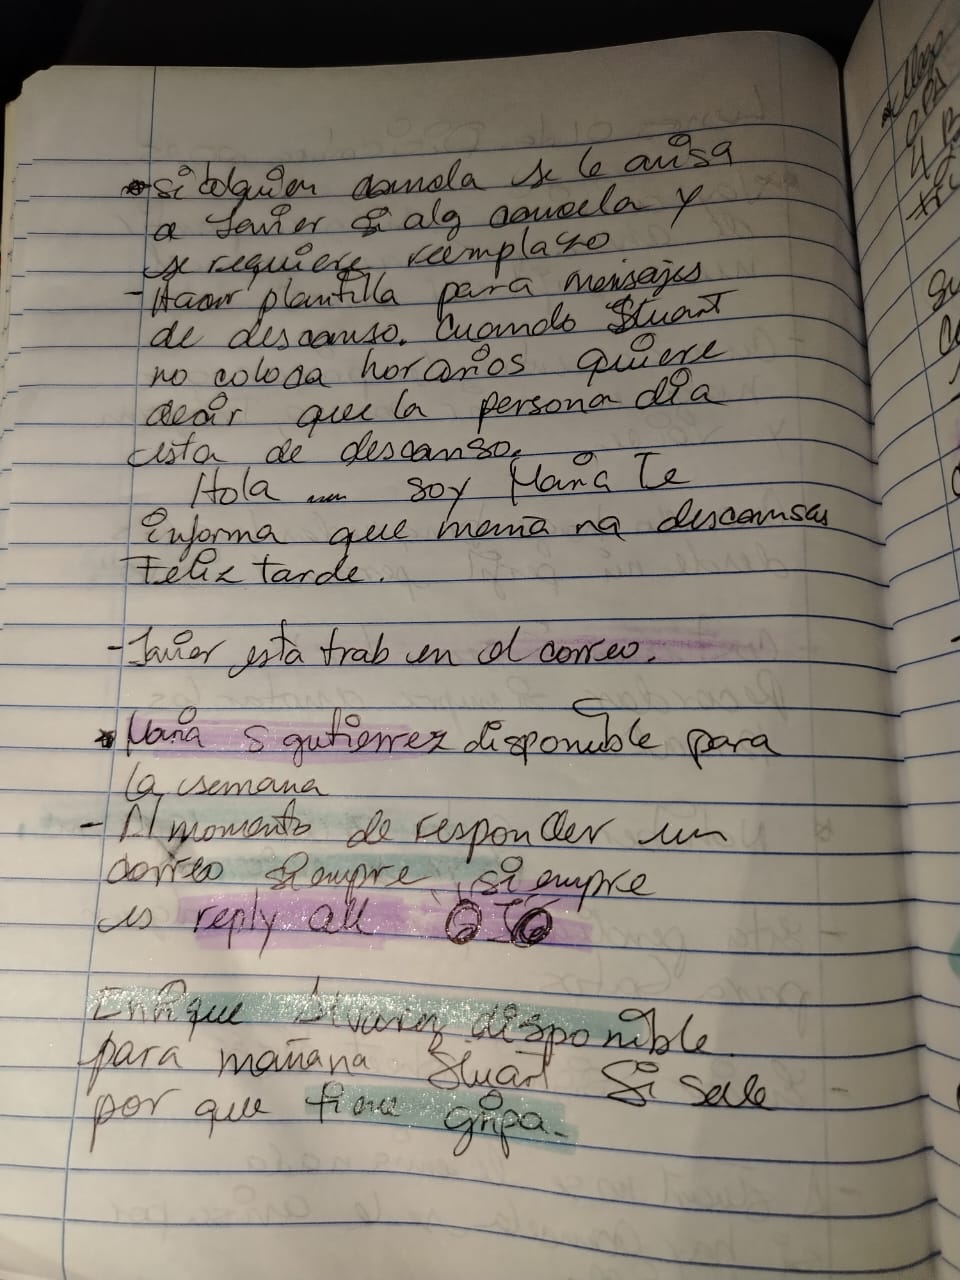 * si alguien cancela se le avisa
a Javier si alg cancela y
se requiere reemplazo
- Hacer plantilla para mensajes
de descanso. Cuando Stuart
no coloca horarios quiere
decir que la persona dia
esta de descanso.
Hola ... soy Maria Te
informa que descansas
Feliz tarde.
- Javier esta trab en el correo.
* Maria S gutierrez disponible para
la semana
- Al momento de responder un
correo siempre, siempre
es reply all OJO
Enrique Alvarez disponible.
para mañana Stuart Si sale
por que tiene gripa.
Mayo